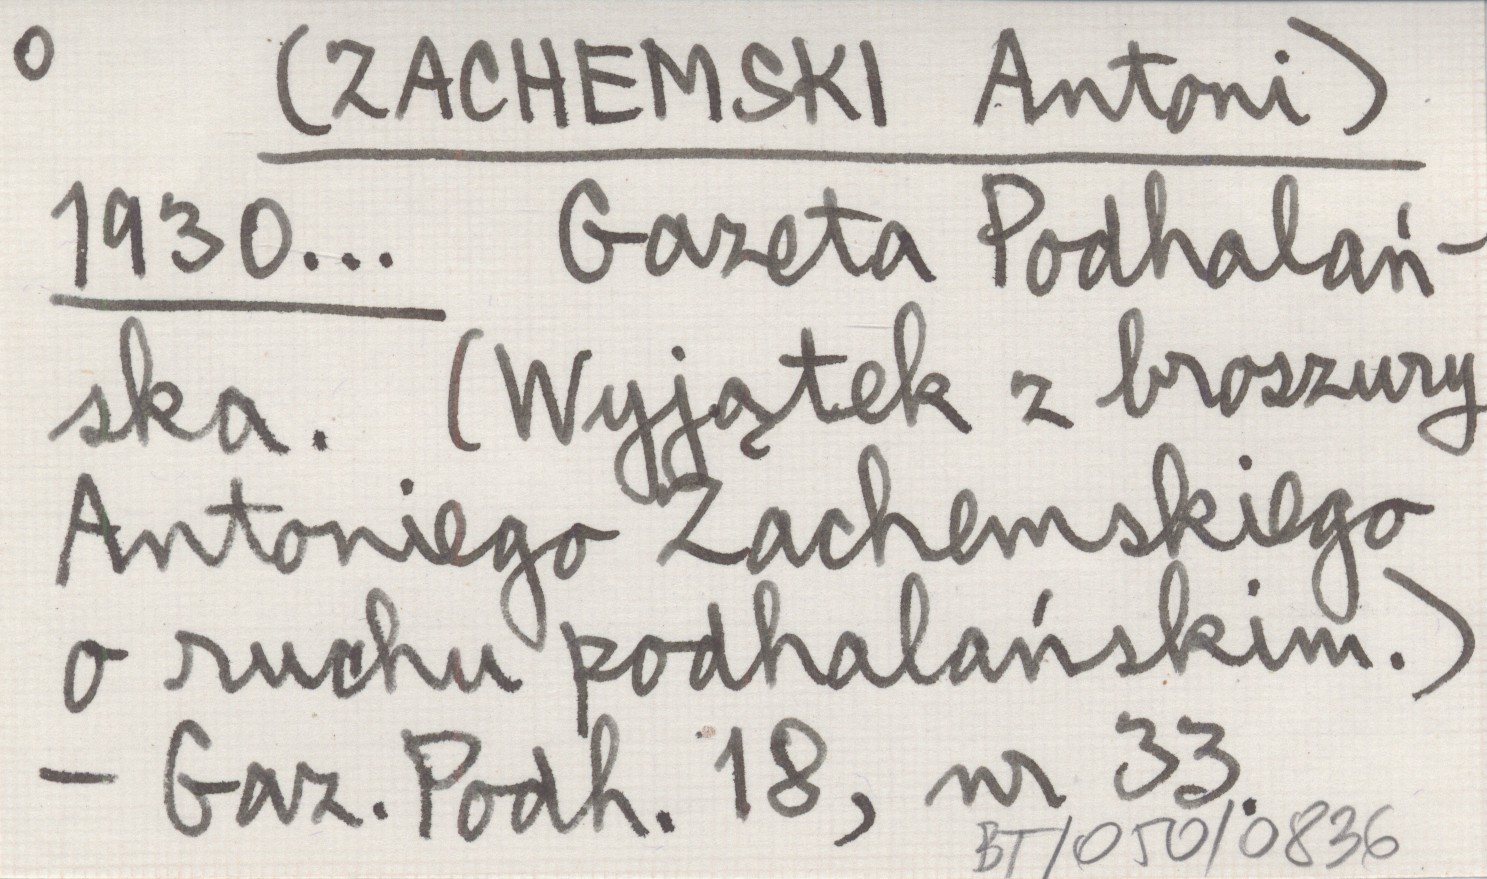 o (ZACHEMSKI Antoni)
1930... Gazeta Podhalań-
ska. (Wyjątek z broszury
Antoniego Zachemskiego
o ruchu podhalańskim.)
- Gaz. Podh. 18, nr 33.
BT/050/0836